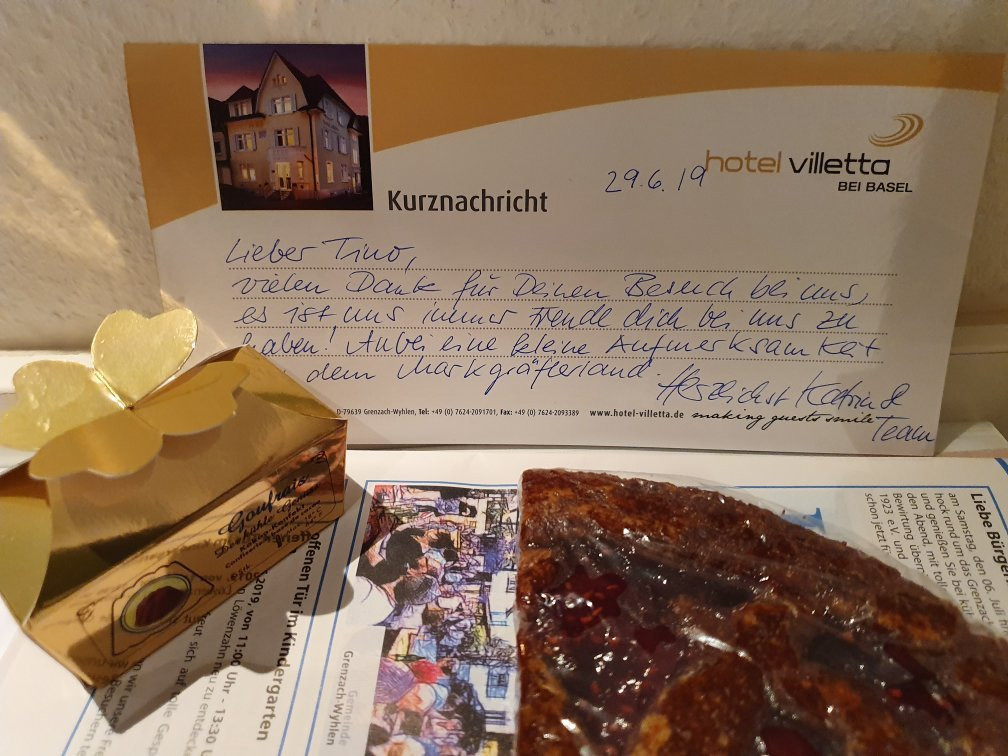 hotel villetta
BEI BASEL
29.6.19
Kurznachricht
Lieber Tino,
vielen Dank für Deinen Besuch bei uns,
es ist uns immer Freude dich bei uns zu
haben! Anbei eine kleine Aufmerksamkeit
dem Markgräflerland.
Herzlichst Katrin &
Team
D-79639 Grenzach-Wyhlen, Tel: +49 (0) 7624-2091701, Fax: +49 (0) 7624-2093389 www.hotel-villetta.de making guests smile
offenen Tür im Kindergarten
2019, von 11:00 Uhr - 13:30 U
Löwenzahn neu zu entdecke
eut sich auf tolle Gesp
Gemeinde
Grenzach-Wyhlen
Liebe Bürger
am Samstag, den 06. Juli
hock rund um das Grenzach
und genießen Sie bei küh
den Abend mit toll
Bewirtung überr
1923 e.V. und
schon jetzt